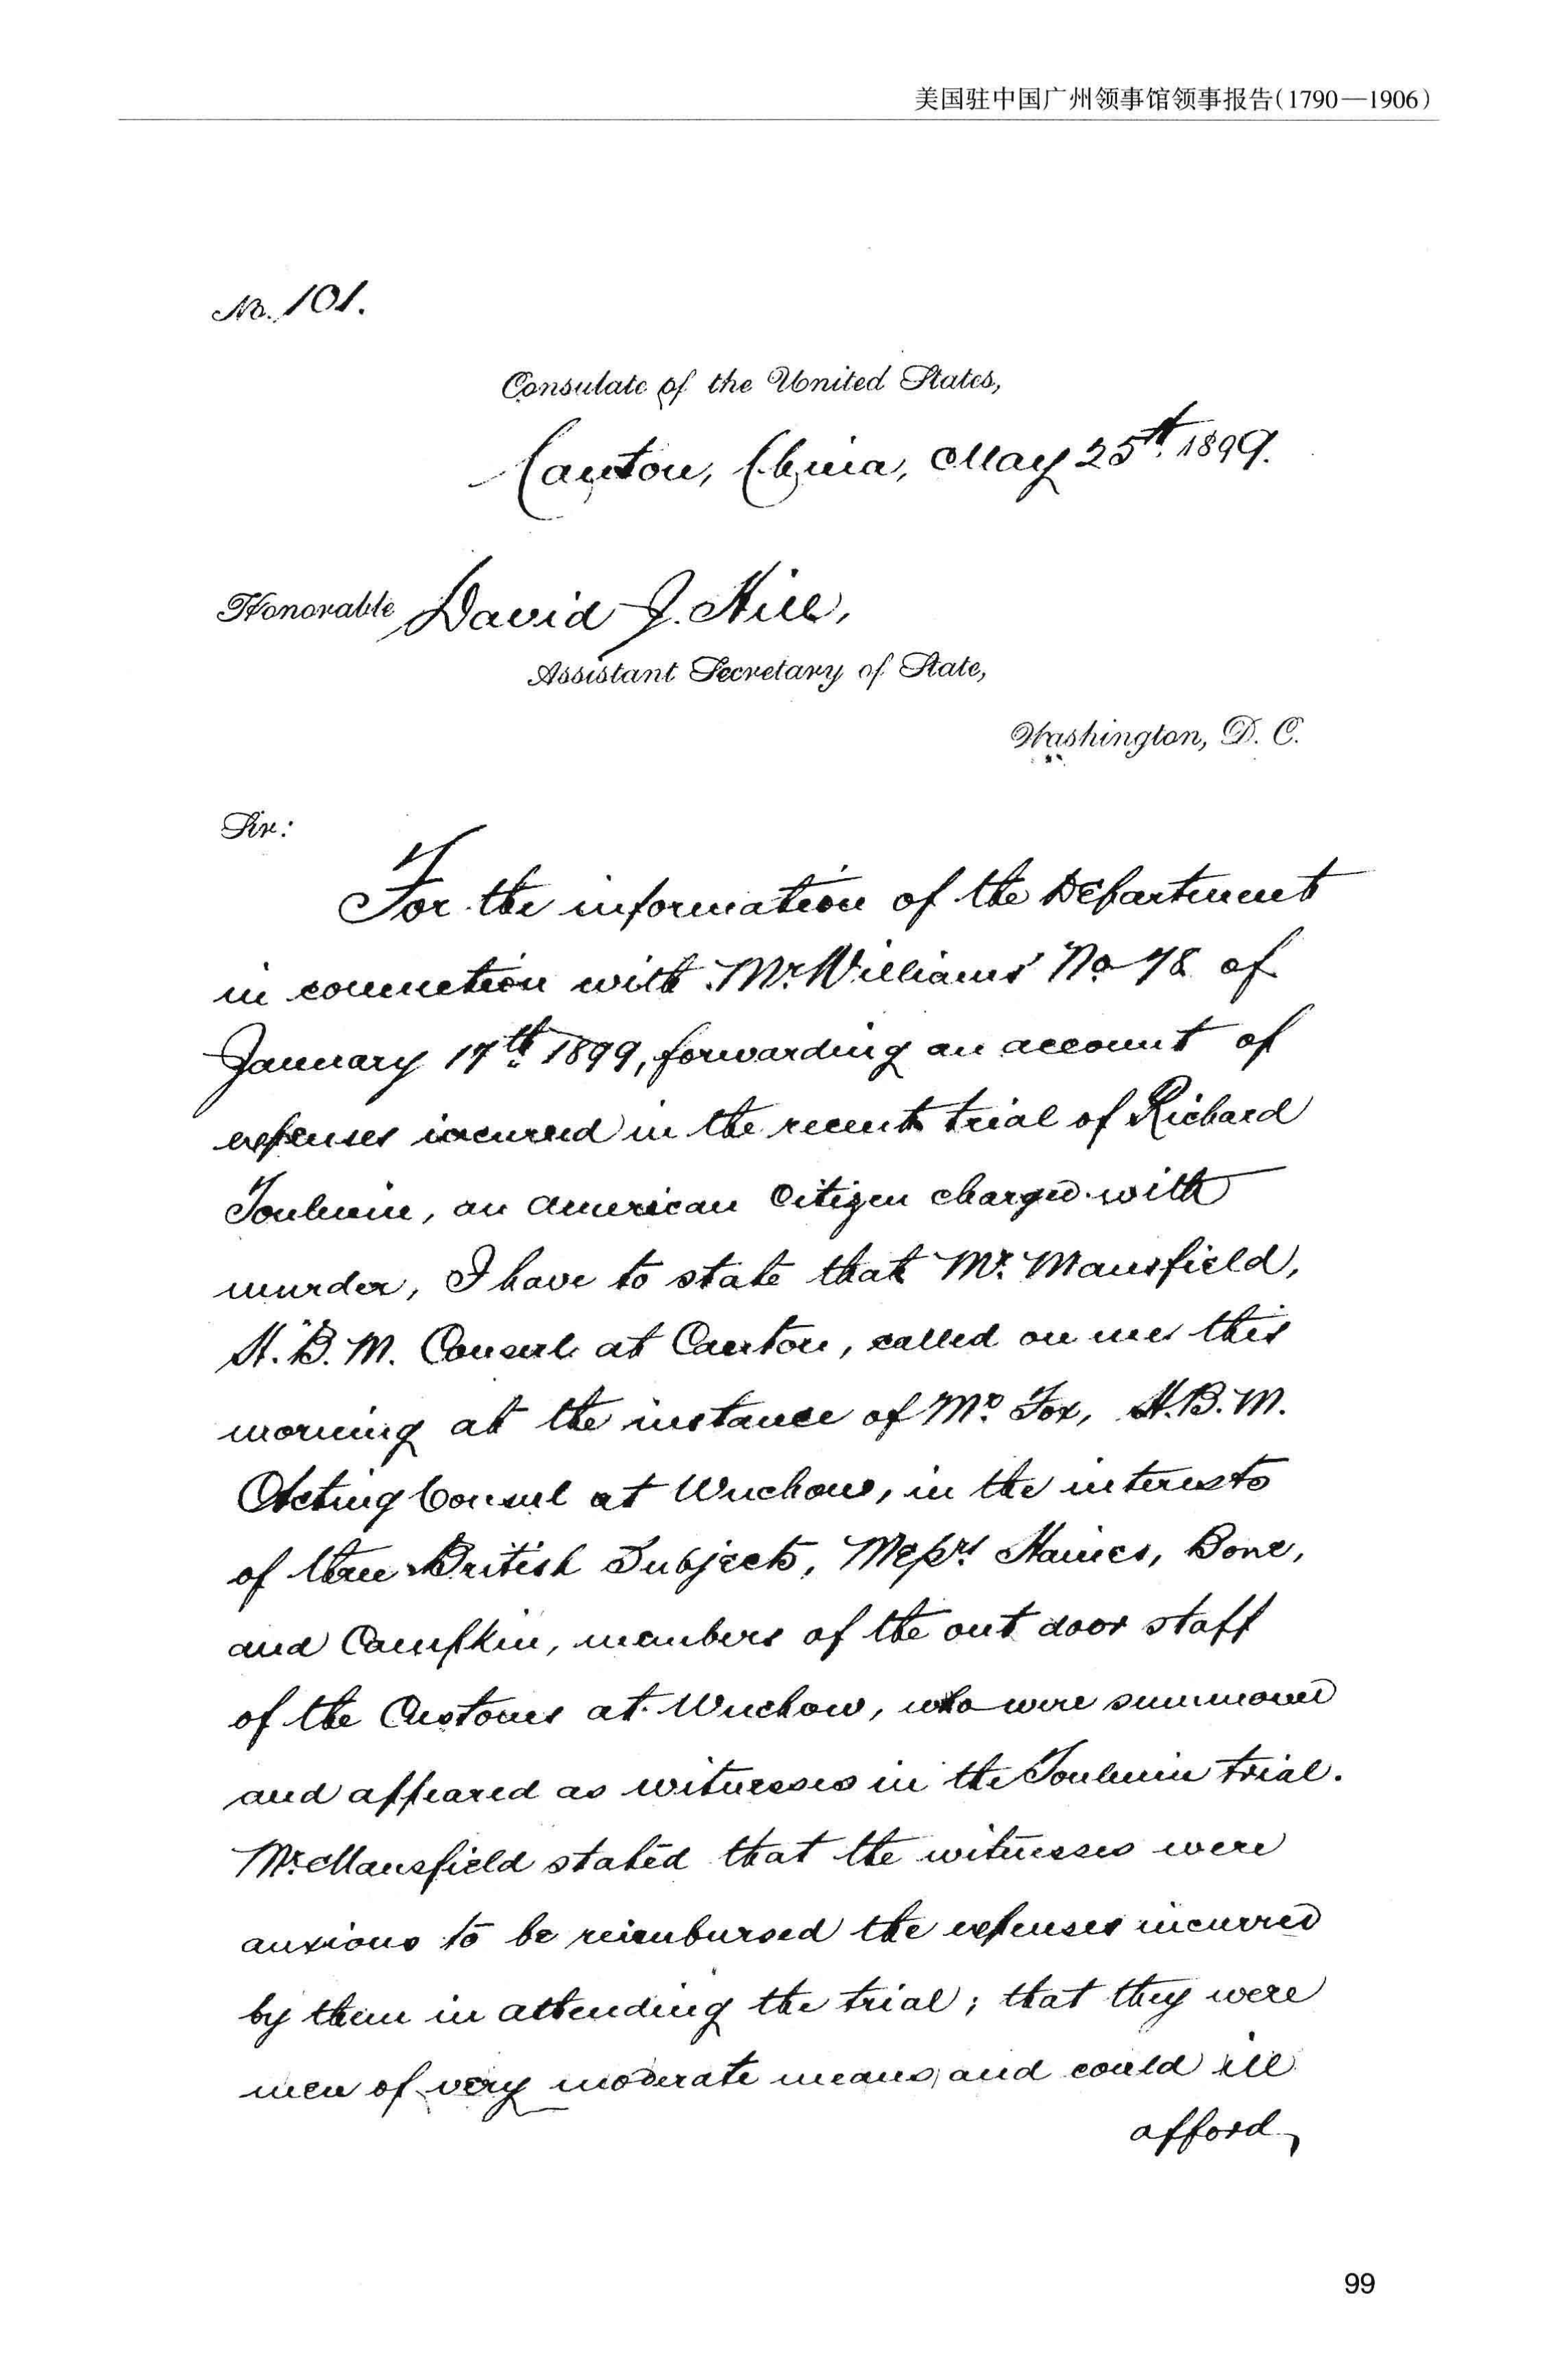 美国驻中国广州领事馆领事报告(1790—1906)
No. 101.
Consulate of the United States,
Canton, China, May 25th. 1899.
Honorable David J. Hill,
Assistant Secretary of State,
Washington, D. C.
Sir:
For the information of the Department
in connection with Mr. Williams' No 78 of
January 17th. 1899, forwarding an account of
expenses incurred in the recent trial of Richard
Toulmin, an American Citizen charged with
murder, I have to state that Mr. Mansfield,
H.B.M. Consul at Canton, called on me this
morning at the instance of Mr. Fox, H.B.M.
Acting Consul at Wuchow, in the interests
of three British Subjects, Messrs Haines, Bone,
and Campkin, members of the out door staff
of the Customs at Wuchow, who were summoned
and appeared as witnesses in the Toulmin trial.
Mr. Mansfield stated that the witnesses were
anxious to be reimbursed the expenses incurred
by them in attending the trial; that they were
men of very moderate means, and could ill
afford
99